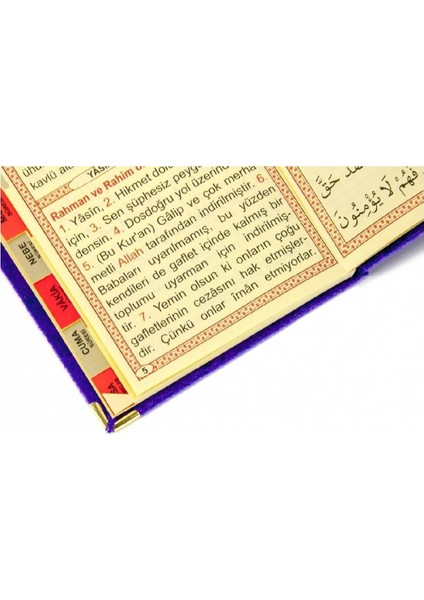 YÂSÎN
Rahman ve Rahim
1. Yâsîn. 2. Hikmet
için, 3. Sen şüphesiz
densin. 4. Dosdoğru yol üzerinde
5. (Bu Kur'an) Gâlip ve çok merha-
metli Allah tarafından indirilmiştir. 6.
Babaları uyarılmamış, bu yüzden
kendileri de gaflet içinde kalmış bir
toplumu uyarman için indirilmiş-
tir. 7. Yemin olsun ki onların çoğu
gafletlerinin cezasını hak etmişler-
dir. Çünkü onlar îmân etmiyorlar.
5
NEBE
VAKIA
CUMA
SÛRESİ
فَهُمْ لَا يُؤْمِنُونَ